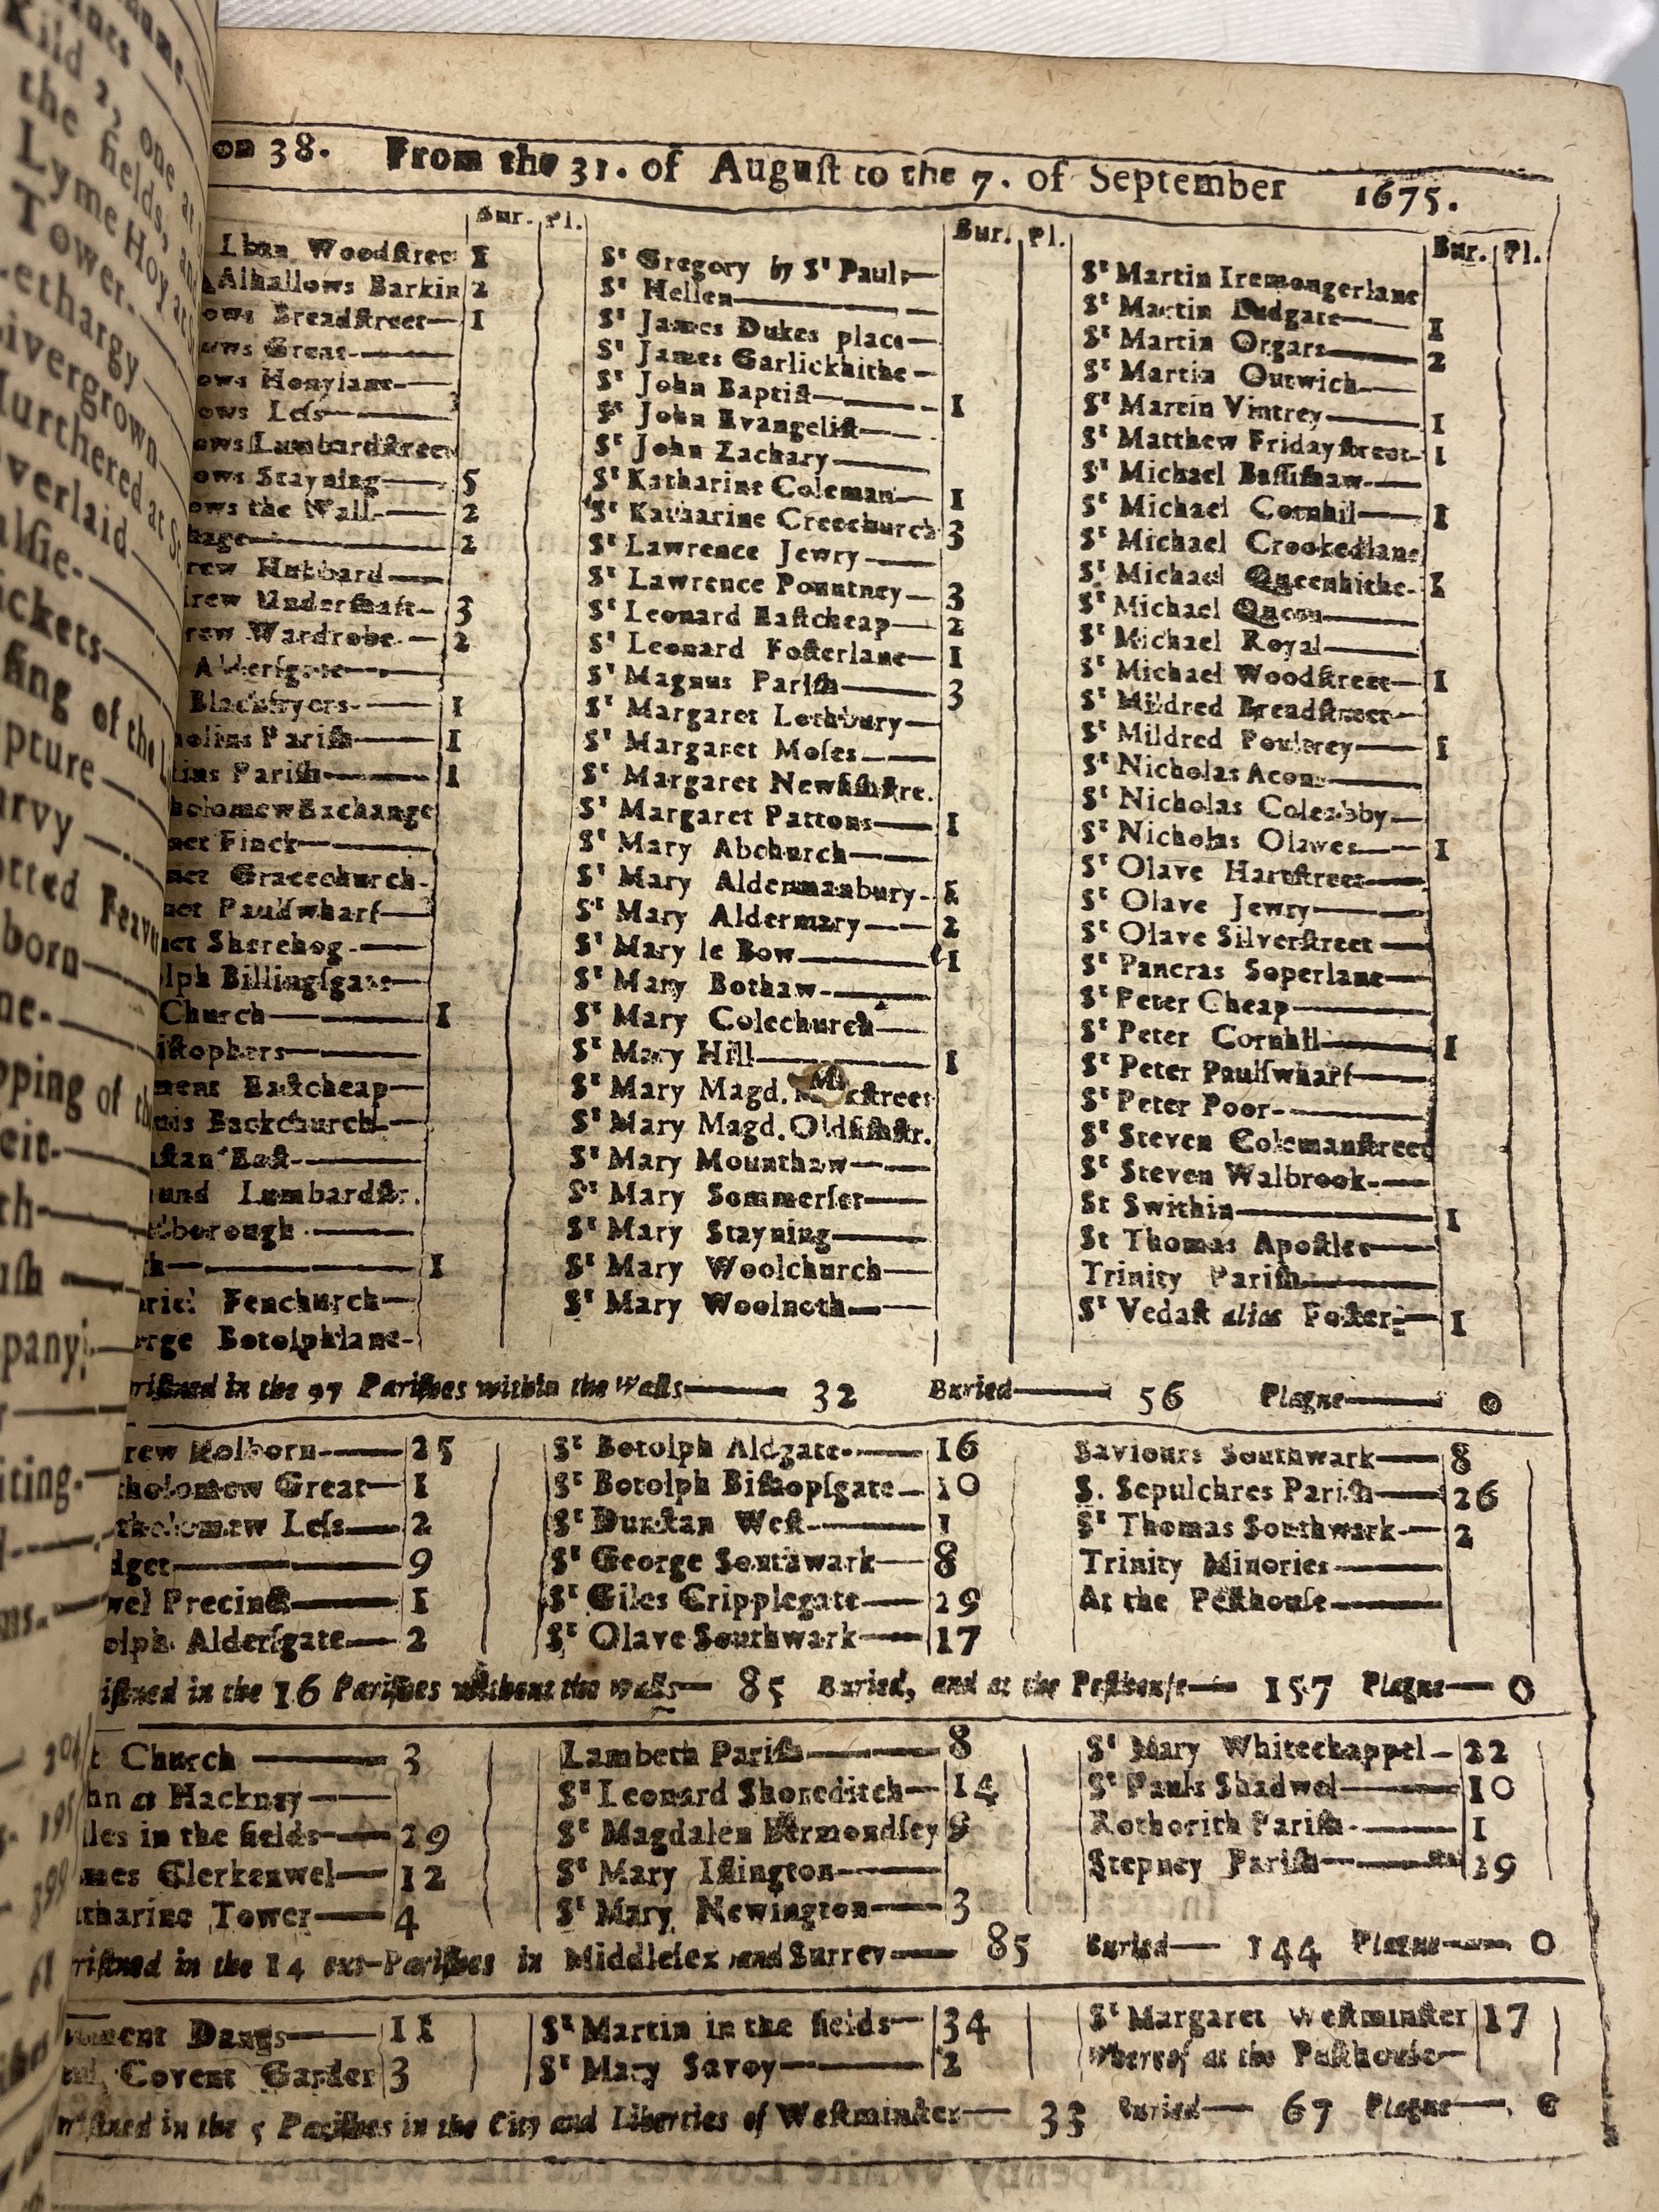 on 38. From the 31. of August to the 7. of September 1675.
Bur. Pl.
lban Woodstreet 1
Alhallows Barkin 2
ows Breadstreet 1
ows Great
ows Honylane
ows Less
ows Lumbardstreet
ows Stayning 5
ows the Wall 2
hage 2
rew Hubbard
rew Undershaft 3
rew Wardrobe 2
Aldersgate
Blackfryers 1
holins Parish 1
tins Parish 1
holomew Exchange
net Finck
net Gracechurch
net Paulswharf
net Sherehog
olph Billingsgate
Church 1
istophers
ment Eastcheap
nis Backchurch
nstan East
und Lumbardstr.
elborough
h 1
briel Fenchurch
orge Botolphlane
Bur. Pl.
St Gregory by St Pauls
St Hellen
St James Dukes place
St James Garlickhithe
St John Baptist 1
St John Evangelist
St John Zachary
St Katharine Coleman 1
St Katharine Creechurch 3
St Lawrence Jewry
St Lawrence Pountney 3
St Leonard Eastcheap 2
St Leonard Fosterlane 1
St Magnus Parish 3
St Margaret Lothbury
St Margaret Moses
St Margaret Newfishstre.
St Margaret Pattons 1
St Mary Abchurch
St Mary Aldermanbury
St Mary Aldermary 2
St Mary le Bow 1
St Mary Bothaw
St Mary Colechurch
St Mary Hill 1
St Mary Magd. Milkstreet
St Mary Magd. Oldfishstr.
St Mary Mounthaw
St Mary Sommerset
St Mary Stayning
St Mary Woolchurch
St Mary Woolnoth
Bur. Pl.
St Martin Iremongerlane
St Martin Ludgate 1
St Martin Orgars 2
St Martin Outwich
St Martin Vintrey 1
St Matthew Fridaystreet 1
St Michael Bassishaw
St Michael Cornhil 1
St Michael Crookedlane
St Michael Queenhithe 1
St Michael Quern
St Michael Royal
St Michael Woodstreet 1
St Mildred Breadstreet
St Mildred Poultrey 1
St Nicholas Acons
St Nicholas Coleabby
St Nicholas Olaves 1
St Olave Hartstreet
St Olave Jewry
St Olave Silverstreet
St Pancras Soperlane
St Peter Cheap
St Peter Cornhil 1
St Peter Paulswharf
St Peter Poor
St Steven Colemanstreet
St Steven Walbrook
St Swithin 1
St Thomas Apostles
Trinity Parish
St Vedast alias Foster 1
ristned in the 97 Parishes within the Walls 32 Buried 56 Plague 0
rew Holborn 25
tholomew Great 1
tholomew Less 2
dget 9
wel Precinct 1
olph Aldersgate 2
St Botolph Aldgate 16
St Botolph Bishopsgate 10
St Dunstan West 1
St George Southwark 8
St Giles Cripplegate 29
St Olave Southwark 17
Saviours Southwark 8
S. Sepulchres Parish 26
St Thomas Southwark 2
Trinity Minories
At the Pesthouse
istned in the 16 Parishes without the Walls 85 Buried, and at the Pesthouse 157 Plague 0
t Church 3
hn at Hackney
les in the fields 29
mes Clerkenwel 12
tharine Tower 4
Lambeth Parish 8
St Leonard Shoreditch 14
St Magdalen Bermondsey 9
St Mary Islington
St Mary Newington 3
St Mary Whitechappel 22
St Pauls Shadwel 10
Rothorith Parish 1
Stepney Parish
ristned in the 14 out-Parishes in Middlesex and Surrey 85 Buried 144 Plague 0
ment Danes 11
Covent Garden 3
St Martin in the fields 34
St Mary Savoy 2
St Margaret Westminster 17
Whereof at the Pesthouse
ristned in the 5 Parishes in the City and Liberties of Westminster 33 Buried 67 Plague 0